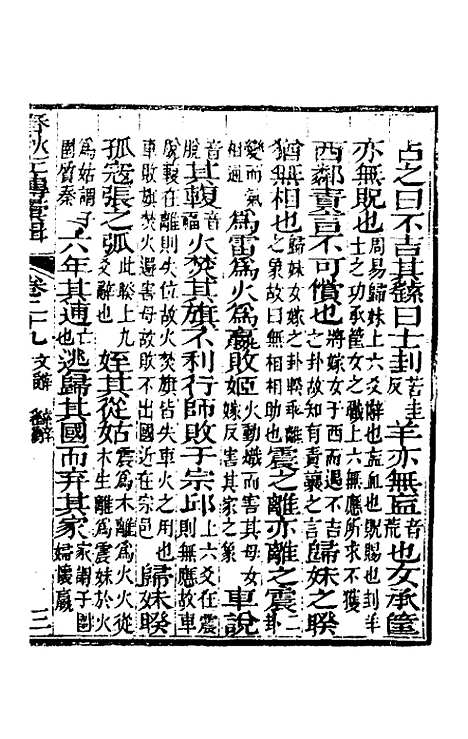 占之曰不吉其繇曰士刲苦圭反羊亦無衁音荒也女承筐
亦無貺也周易歸妹上六爻辭也衁血也貺賜也刲羊士之功承筐女之職上六無應所求不獲
西鄰責言不可償也將嫁女于西而遇不吉之卦故知有責讓之言歸妹之睽
猶無相也歸妹女嫁之卦睽乖離之象故曰無相相助也震之離亦離之震二卦
變而氣相通為雷為火為嬴敗姬火動熾而害其母女嫁反害其家之象車說
音脫其輹音福火焚其旗不利行師敗于宗邱上六爻在震則無應故車
脫輹在離則失位故火焚旗皆失車火之用也車敗旗焚火還害母故敗不出國近在宗邑歸妹睽
孤寇張之弧此睽上九爻辭也姪其從姑震為木離為火火從木生離為震妹於火
為姑謂子圉質秦六年其逋亡也逃歸其國而弃其家家謂子圉婦懷嬴
春秋左傳彙輯 卷二十九 文辭 繇辭 三